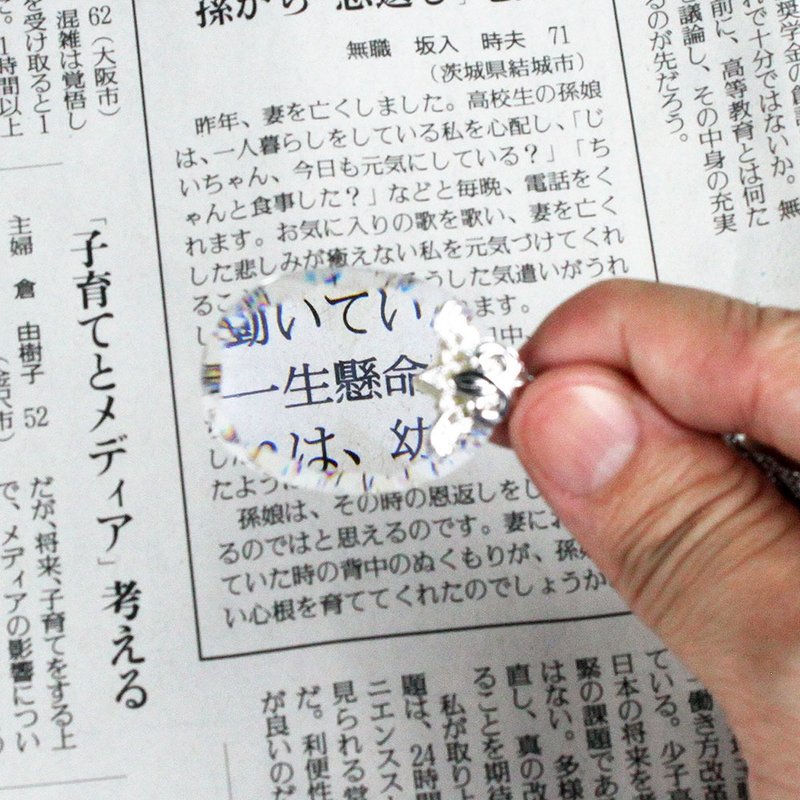 孫から「恩返し」
無職 坂入 時夫 71
(茨城県結城市)
昨年、妻を亡くしました。高校生の孫娘
は、一人暮らしをしている私を心配し、「じ
いちゃん、今日も元気にしている?」「ち
ゃんと食事した?」などと毎晩、電話をく
れます。お気に入りの歌を歌い、妻を亡く
した悲しみが癒えない私を元気づけてくれ
るこ
そうした気遣いがうれ
ます。
日中
動いてい
一生懸命
は、幼
した
たように
孫娘は、その時の恩返しをし
るのではと思えるのです。妻にお
ていた時の背中のぬくもりが、孫娘
い心根を育ててくれたのでしょうか
奨学金の創設
れで十分ではないか。無
前に、高等教育とは何た
議論し、その中身の充実
るのが先だろう。
62(大阪市)
混雑は覚悟し
を受け取ると1
1時間以上
「子育てとメディア」考える
主婦 倉 由樹子 52
(金沢市)
だが、将来、子育てをする上
で、メディアの影響につい
働き方改革
ている。少子高
日本の将来を
緊の課題であ
はない。多様
直し、真の改
ることを期待
私が取り上
題は、24時間
ニエンスス
見られる営
だ。利便性
が良いのだ